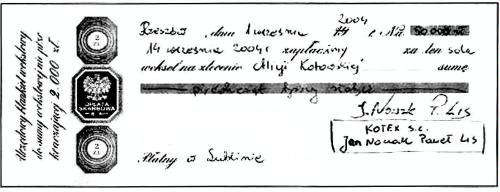 Urzędowy blankiet wekslowy
do sumy wekslowej nie prze-
kraczającej 2.000 zł.
2
ZŁ
OPŁATA
SKARBOWA
2
ZŁ
2004
Rzeszów, dnia 1 września
14 września 2004 r. zapłacimy za ten sola
weksel na zlecenie Alicji Kotowskiej sumę
J. Nowak P. Lis
KOTEX s.c.
Jan Nowak Paweł Lis
Płatny w Lublinie